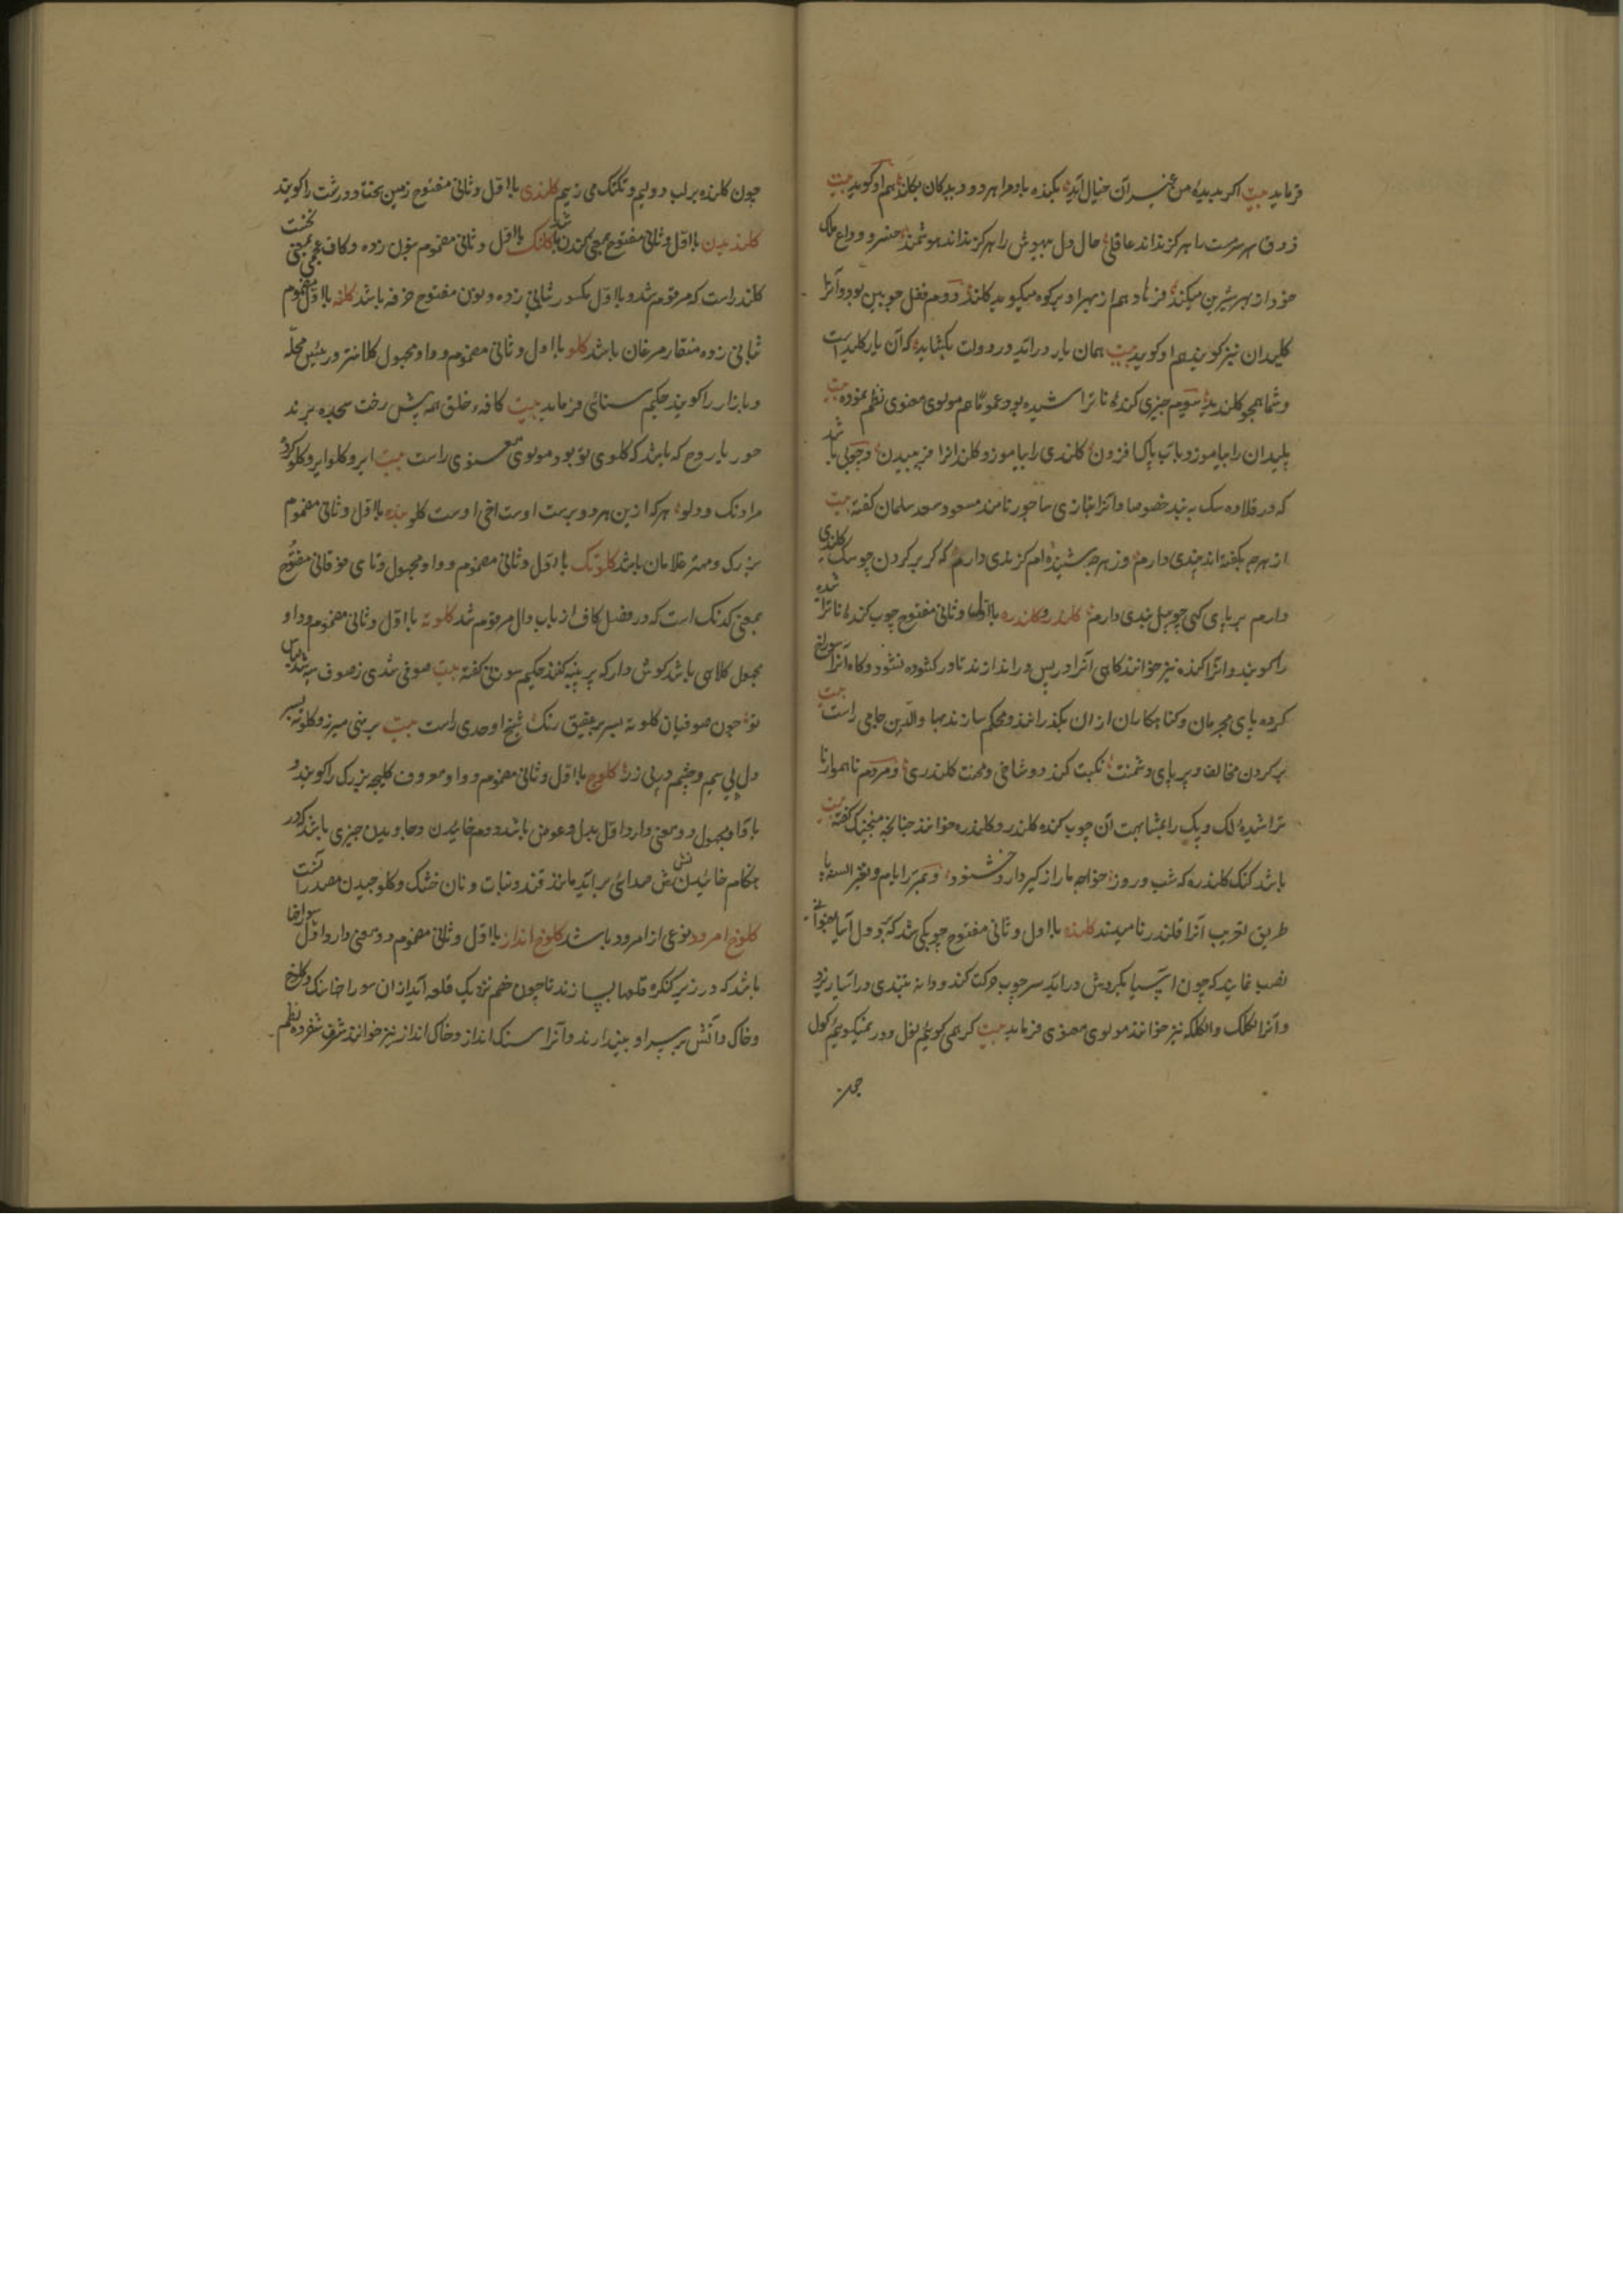 فرماید بیت اکر بدیده من غیر آن خیال آید بکنده بادمرا هر دو دیدکان بکلند هم او کوید بیت
ذوق سرمست را هرکز نداند عاقلی حال دل بیهوش را هرکز نداند هوشمند خسرو وداع ملک
خود از بهر شیرین میکند فرهاد هم از بهر او بر کوه میکوبد کلند دوم قفل چوبین بود و آنرا
کلیدان نیز کویند هم او کوید بیت همان یار دراید در دولت بکشاید که آن یار کلیدست
وشما همچو کلندید سوم چیزی کنده ناتراشیده بود عموما هم مولوی معنوی نظم نموده بیت
پلیدان را بیاموزد بآب پاک افزون کلندی را بیاموزد کلندانرا فریبیدن و چوبی باشد
که در قلاده سک بندند خصوصا و آنرا بتازی ساجور نامند مسعود سعد سلمان کفته بیت
از هرچه بکفته اند پندی دارم وز هرچه شنیده ام کزندی دارم که کر بر کردن چو سک کلندی
دارم بر پای کهی چو پیل بندی دارم کلندر و کلندره با اول و ثانی مفتوح چوب کنده ناتراشیده
را کویند و آنرا کنده نیز خوانند کاهی آنرا در پس در اندازند تا در کشوده نشود و کاه آنرا سوراخ
کرده پای مجرمان و کناهکاران از ان بکذرانند و محکم سازند بهاوالدین جامی راست بیت
بر کردن مخالف و بر پای دشمنت نکبت کند دوشاخی و محنت کلندری و مردم ناهموار نا
تراشیده لک و پک را بمشابهت آن چوب کنده کلندر و کلندره خوانند چنانچه منجیک کفته بیت
باشد کنک کلندره که شب و روز خواجه ما را ز کیر دارد خشنود و بمرایام و بتغیر السنه با
طریق تعریب آنرا قلندر نامیدند کلنده با اول و ثانی مفتوح چوبکی باشد که بر دول آسیا بعنوانی
نصب نمایند که چون آسیا بکردش دراید سر چوب حرکت کند و دانه بتندی در آسیا ریزد
و آنرا لکلک و لکلکه نیز خوانند مولوی معنوی فرماید بیت کر همی کویم نغل و در نمیکویم کول
چون
چون کلنده بر لب دولیم و تکتک می زنیم کلندی با اول و ثانی مفتوح زمین سخت و درشت را کویند
کلندیدن با اول و ثانی مفتوح بمعنی کندن باشد کلنک با اول و ثانی مضموم بنون زده و کاف عجمی بمعنی نخست
کلند است که مرقوم شد و با اول مکسور ثانی زده و نون مفتوح خرفه باشد کلنه با اول مضموم
ثانی زده منقار مرغان باشد کلو با اول و ثانی مضموم و واو مجهول کلانتر و رئیس محله
و بازار را کویند حکیم سنائی فرماید بیت کافه خلق همه پیش رخت سجده برند
حور یا روح که باشد که کلوی تو بود مولوی معنوی راست بیت ایر و کلو ایر و کلو کرد
مرا دنک و دلو هر که ازین هر دو برست اوست اخی اوست کلو بنده با اول و ثانی مضموم
بزرک و مهتر غلامان باشد کلوتک با اول و ثانی مضموم و واو مجهول و تای فوقانی مفتوح
بمعنی کدنک است که در فصل کاف از باب دال مرقوم شد کلوته با اول و ثانی مضموم و واو
مجهول کلاهی باشد کوش دار که پر پنبه کنند حکیم سوزنی کفته بیت صوفی شدی ز صوف سیه شد لباس
تو چون صوفیان کلوته بسر بر عقیق رنک شیخ اوحدی راست بیت بر تنی میرزو کلوته بسر
دل پی سیم و چشم در پی زر کلوج با اول و ثانی مضموم و واو معروف کلیچه بزرک را کویند و
با واو مجهول دو معنی دارد اول بدل و عوض باشد دوم خائیدن و جاویدن چیزی باشد که در
هنکام خائیدنش صدائی براید مانند قند و نبات و نان خشک و کلوجیدن مصدر آنست
کلوخ امرود نوعی از امرود باشد کلوخ انداز با اول و ثانی مضموم دو معنی دارد اول سوراخها
باشد که در زیر کنکره قلعها بسازند تا چون خصم نزدیک قلعه آید از ان سوراخها سنک و کلوخ
و خاک و آتش بر سر او بیندازند و آنرا سنک انداز و خاک انداز نیز خوانند شرف شفروه نظم